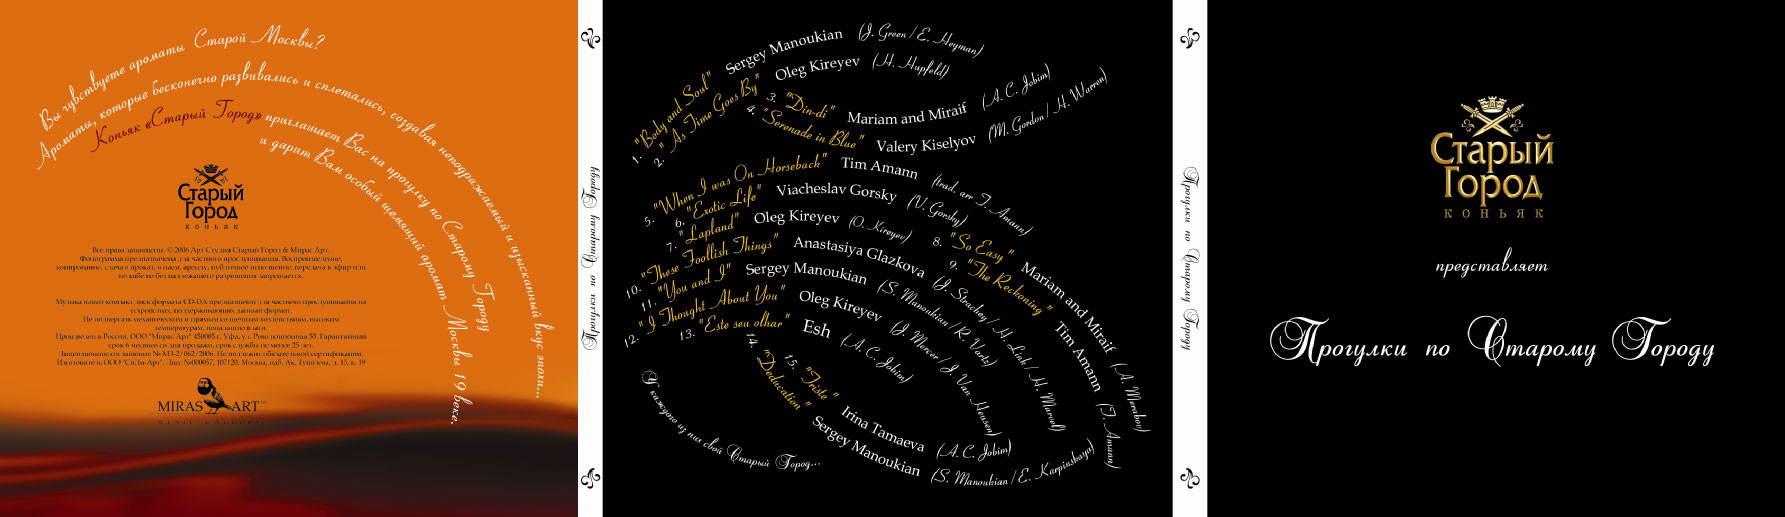 Вы чувствуете ароматы Старой Москвы?
Ароматы, которые бесконечно развивались и сплетались, создавая неподражаемый и изысканный вкус эпохи...
Коньяк «Старый Город» приглашает Вас на прогулку по Старому Городу
и дарит Вам особый щемящий аромат Москвы 19 веке.
Старый
Город
КОНЬЯК
Все права защищены. © 2006 Арт Студия Старый Город & Мирас Арт.
Фонограмма предназначена для частного прослушивания. Воспроизведение,
копирование, сдача в прокат, в наем, аренду, публичное исполнение, передача в эфир или
по кабелю без надлежащего разрешения запрещается.
Музыкальный компакт диск формата CD-DA предназначен для частного прослушивания на
устройствах, поддерживающих данный формат.
Не подвергать механическим и прямым солнечным воздействиям, высоким
температурам, попаданию влаги.
Произведен в России, ООО "Мирас Арт" 450005 г. Уфа, ул. Революционная 55, Гарантийный
срок 6 месяцев со дня продажи, срок службы не менее 25 лет.
Лицензионное соглашение № МЛ-2/062/2006. Не подлежит обязательной сертификации.
MIRAS ART
MUSIC GALLERY
Прогулки по Старому Городу
1. "Body and Soul" Sergey Manoukian (J. Green / E. Heyman)
2. "As Time Goes By" Oleg Kireyev (H. Hupfeld)
3. "Din-di" Mariam and Miraif (A.C. Jobim)
4. "Serenade in Blue" Valery Kiselyov (M. Gordon / H. Warren)
5. "When I was On Horseback" Tim Amann (trad. arr T. Amann)
6. "Exotic Life" Viacheslav Gorsky (V. Gorsky)
7. "Lapland" Oleg Kireyev (O. Kireyev)
8. "So Easy" Mariam and Miraif (A. Merabov)
9. "The Reckoning" Tim Amann (T. Amann)
10. "These Foollish Things" Anastasiya Glazkova (J. Strachey / H. Link / H. Marvel)
11. "You and I" Sergey Manoukian (S. Manoukian / R. Varts)
12. "I Thought About You" Oleg Kireyev (J. Mercer / J. Van Heusen)
13. "Este seu olhar" Esh (A.C. Jobim)
14. "Deducation" Sergey Manoukian (S. Manoukian / E. Karpinskaya)
15. "Triste" Irina Tamaeva (A.C. Jobim)
У каждого из них свой Старый Город...
Прогулки по Старому Городу
Старый
Город
КОНЬЯК
представляет
Прогулки по Старому Городу